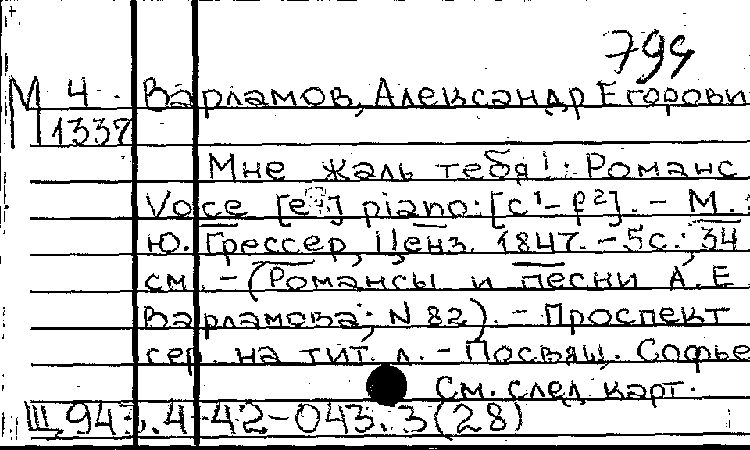 794
М 4 Варламов, Александр Егорови
1337
Мне жаль тебя!: Романс
Voce [e] piano: [c¹-f²]. - М.:
Ю. Грессер, Ценз. 1847. - 5с.; 34
см. - (Романсы и песни А.Е
Варламова; N 82). - Проспект
сер. на тит. л. - Посвящ. Софье
См. след. карт.
Щ 943.4-42-043.3(28)